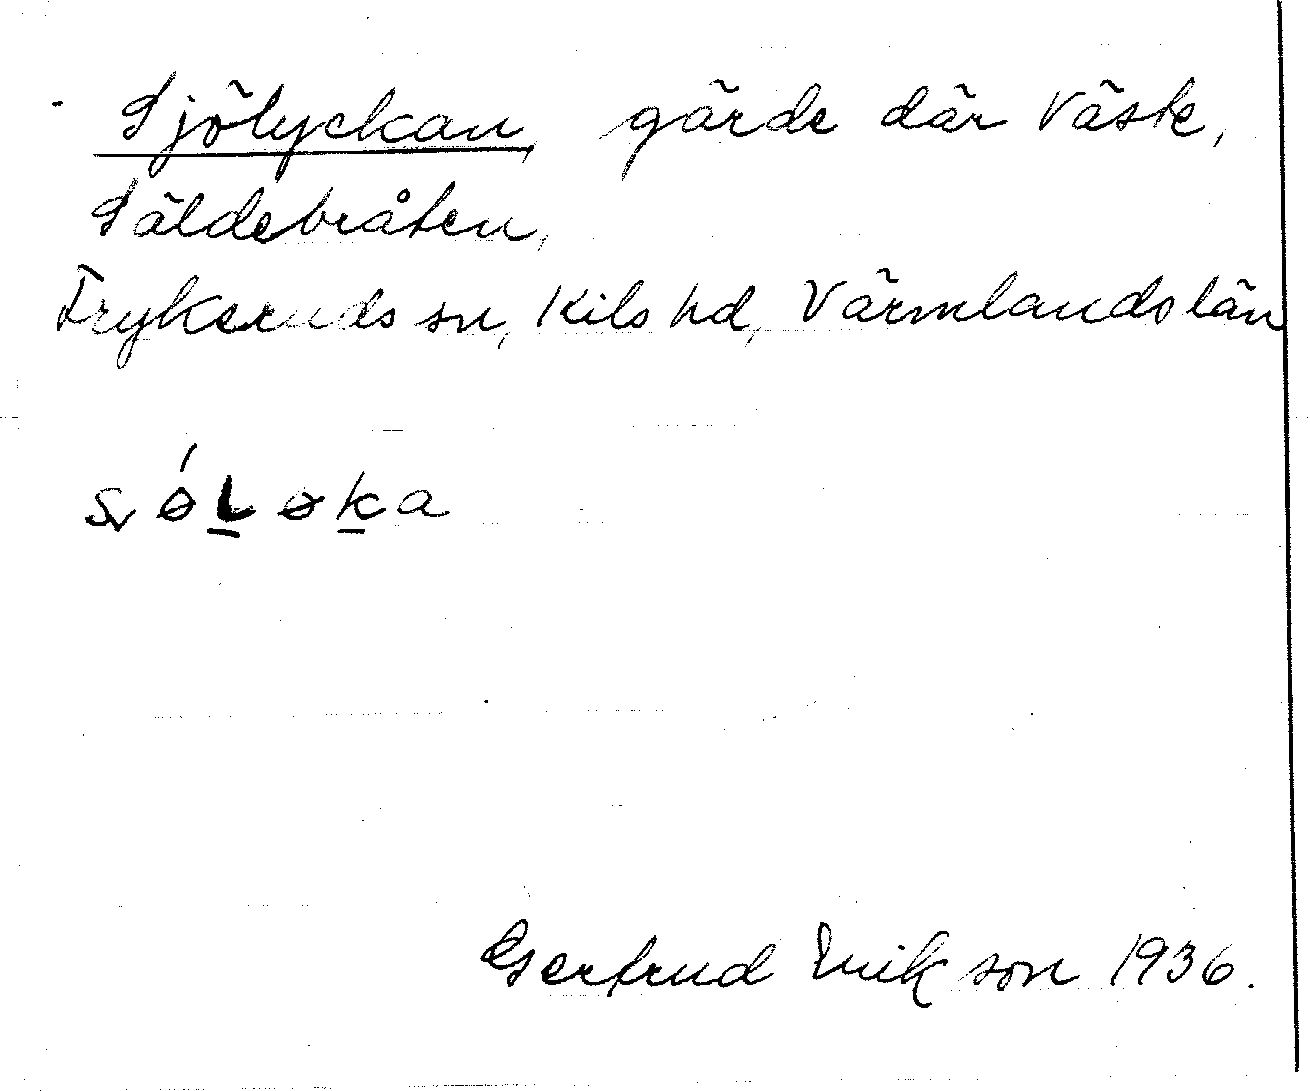 Sjölyckan, gärde där väste,
Säldebråten,
Fryksruds sn, Kils hd, Värmlands län
Gertrud Erikson 1936.